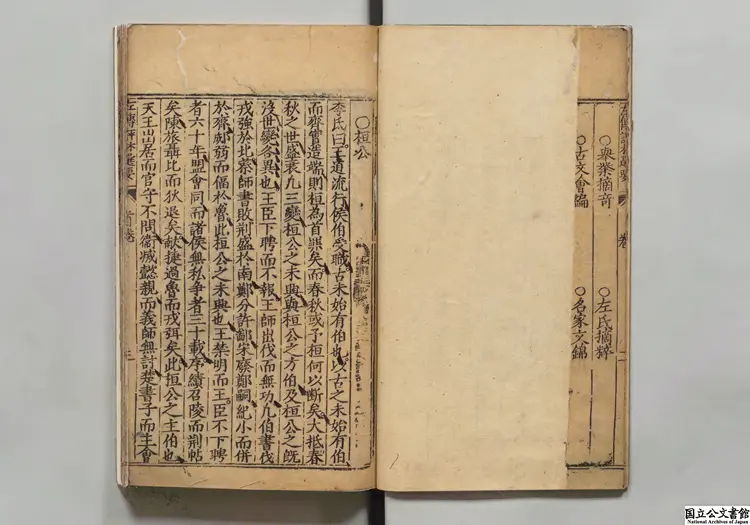 ○衆業摘奇 ○左氏摘粹
○古文會編 ○名家文錦
○桓公
李氏曰王道流行侯伯受職古未始有伯也以古之未始有伯
而齊實造端則桓為首罪矣而春秋或予桓何以斷矣大抵春
秋之世盛衰凢三變桓公之未興與桓公之方伯及桓公之既
沒世變各異也王臣下聘而不報王師出伐而無功凢伯書伐
戎強於北蔡師書敗荊盛於南鄭分許鄙宋廢鄭嗣紀小而併
於齊郕弱而偪於魯此桓公之未興也王禁明而王臣不下聘
者六十年盟會同而諸侯無私爭者三十載序績召陵而荊帖
矣陳旅聶北而狄退矣獻捷過魯而戎弭矣此桓公之主伯也
天王出居而官守不問衛滅懿親而義師無討楚書子而主會
左傳評林選要 首卷 三
国立公文書館
National Archives of Japan